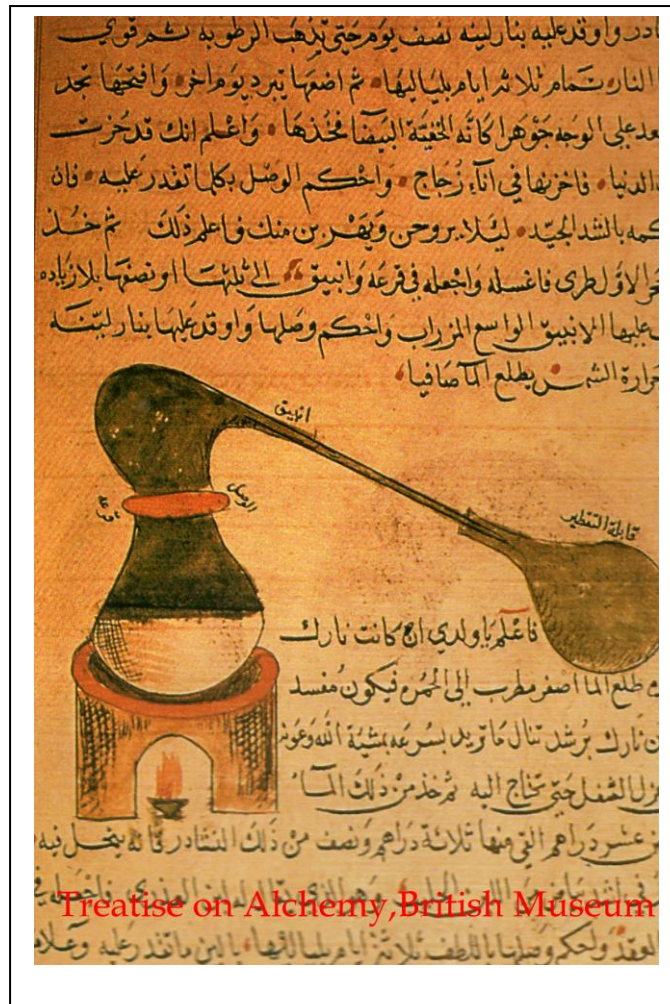 واوقد عليه بنار لينه نصف يوم حتى تذهب الرطوبه ثم قوي
النار تمام ثلاثه ايام بلياليها ثم اضعها تبرد يوم اخر وافتحها تجد
على الوجه جوهرا كانه البيضا فخذها واعلم انك قد خزت
الدنيا فاخزنها في اناء زجاج واحكم الوصل بكلما تقدر عليه فان
بالشد الجيد ليلا يروحن ويفرن منك فاعلم ذلك ثم خذ
لطرى فاغسله واجعله في قرعه وانبيق الى ثلثها او نصفها بلا زياده
عليها الانبيق الواسع المزراب واحكم وصلها واوقد عليها بنار لينه
حرارة الشمس يطلع الما صافيا
انبيق
الوصل
قرعه
قابلة التقطير
فاعلم ياولدي ان كانت نارك
طلع الما اصفر يضرب الى الحمره فيكون مفسد
نارك برشد تنال ما تريد بسرعه بمشية الله وعونه
الثفل حتى تحتاج اليه ثم خذ من ذلك الماء
عشر دراهم التي منها ثلاثة دراهم ونصف من ذلك النشادر فانه ينحل فيه
Treatise on Alchemy,British Museum
العقد واحكم وصلها باللطف ثلاثة ايام بلياليها ما تقدر عليه